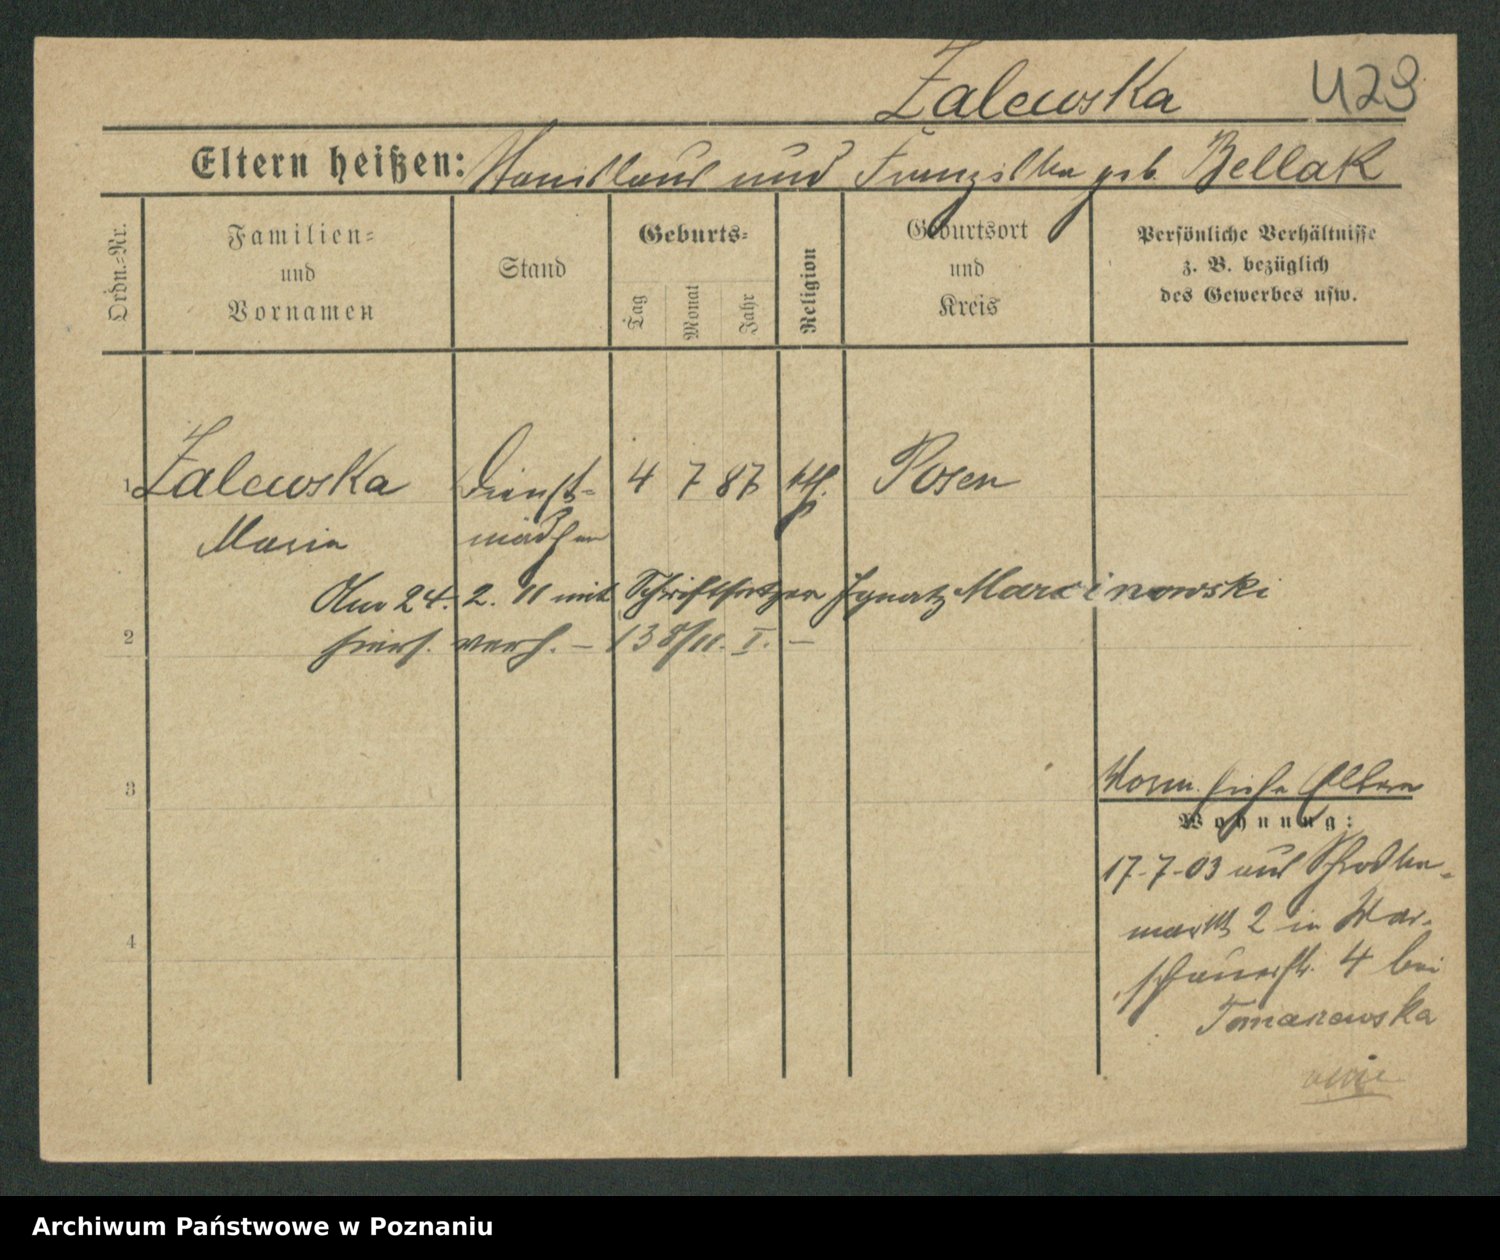 Zalewska
429
Eltern heißen: Stanislaus und Franziska geb. Bellak
Ordn.-Nr.
Familien-
und
Vornamen
Stand
Geburts-
Tag
Monat
Jahr
Religion
Geburtsort
und
Kreis
Persönliche Verhältnisse
z. B. bezüglich
des Gewerbes usw.
1 Zalewska Dienst- 4 7 87 kth. Posen
Maria mädchen
Am 24. 2. 11 mit Schriftsetzer Ignatz Marcinowski
2 hiers. verh. – 138/11. I. –
3
Vorm. siehe Eltern
Wohnung:
17-7-03 aus Schrodka-
markt 2 in War-
4
schauerstr. 4 bei
Tomaszewska
Archiwum Państwowe w Poznaniu